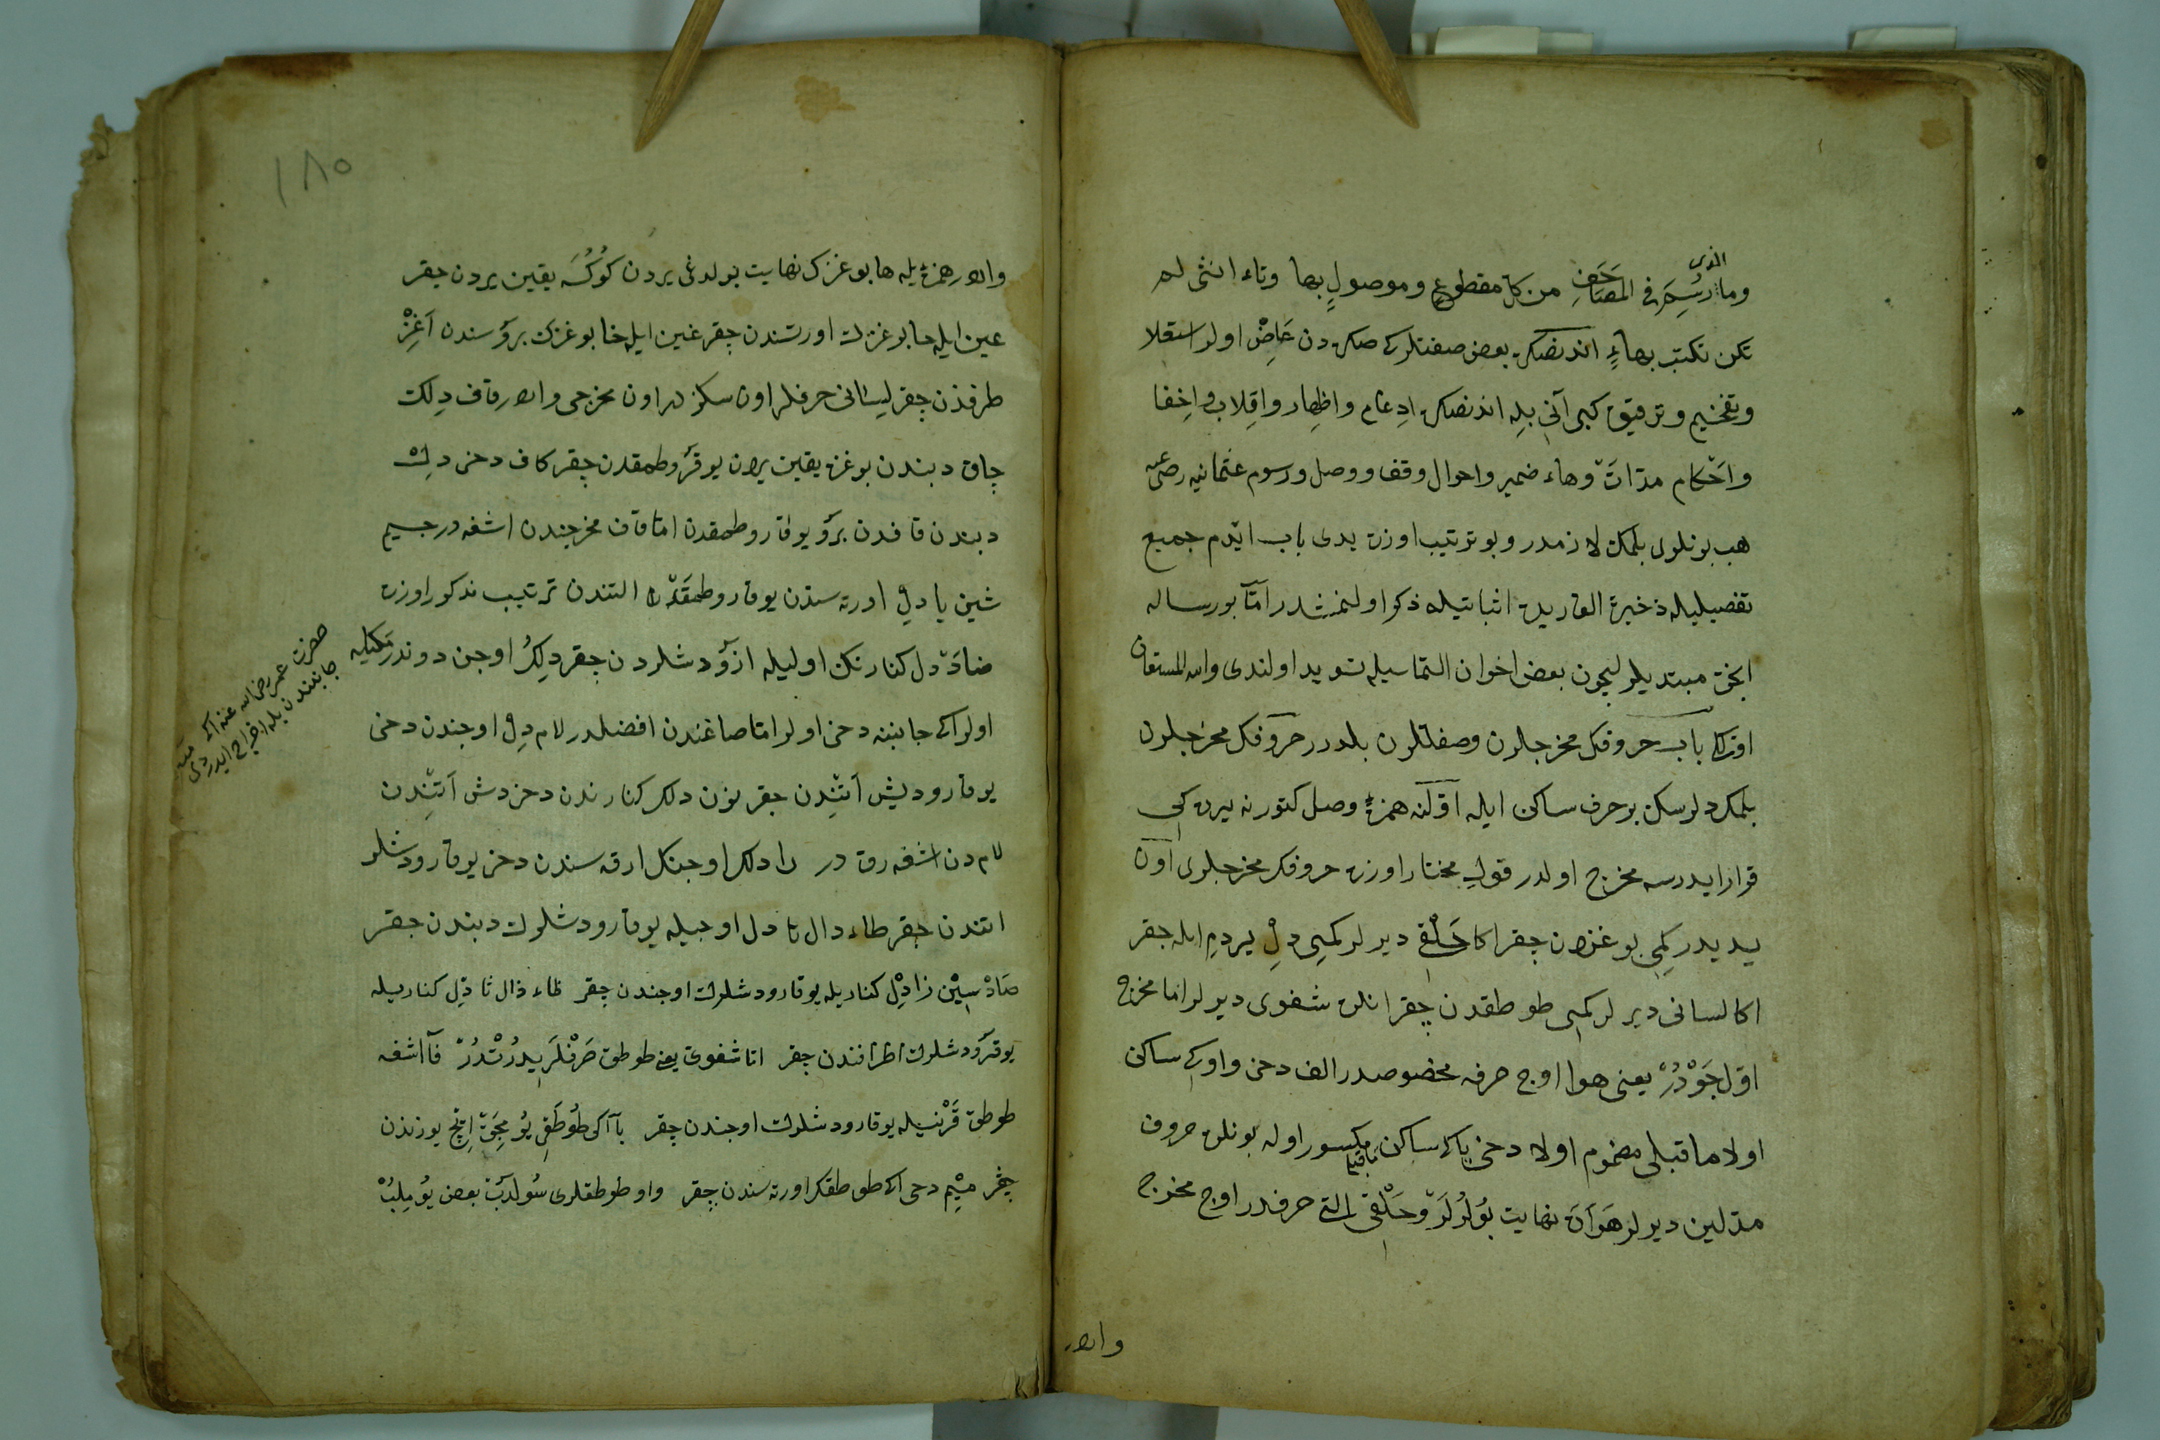 الذى
وما رسم فى المصاحف من كل مقطوع وموصول بها وتاء انثى لم
تكن تكتب بهاء اندنصكره بعض صفتلركه صكره دن عارض اولر استعلا
وتفخيم وترقيق كبى آنى بيله اندنصكره ادغام واظهار واقلاب واخفا
واحكام مدات وهاء ضمير واحوال وقف ووصل ورسوم عثمانيه رضى عنه
هب بونلرى بلمك لازمدر وبو ترتيب اوزره يدى باب ايتدم جميع
تفصيليله ذخيرة القاريده اثباتيله ذكر اولنمشدر اما بو رساله
انجق مبتديلر ايچون بعض اخوان التماسيله تسويد اولندى والله المستعان
اولكى باب حروفك مخرجلرن وصفتلرن بلدرر حروفك مخرجلرن
بلمك دلرسك بو حرف ساكن ايله اولنه همزه وصل كتور نه يرده كى
قرار ايدرسه مخرج اولدر قول مختار اوزره حروفك مخرجلرى اون
يديدر كمى بوغزدن چقر اكا حلقى ديرلر كمسى دل يردم ايله چقر
اكا لسانى ديرلر كمسى طوطقدن چقر انلره شفوى ديرلر اما مخرج
اول جودر يعنى هوا اوج حرفه مخصوصدر الف دخى واوكه ساكن
اولا ما قبلى مضموم اولا دخى ياكه ساكن ما قبلى مكسور اوله بونلره حروف
مد لين ديرلر هواده نهايت بولرلر وحلقى التى حرفدر اوج مخرج
وارر
١٨٥
وارر همزه يله ها بوغزك نهايت بولدغى يردن كوكسه يقين يردن چقر
عين ايله حا بوغزك اورتسندن چقر غين ايله خا بوغزك بروسندن آغز
طرفندن چقر لسانى حرفلر اون سكزدر اون مخرجى وارر قاف دلك
چاق دبندن بوغزه يقين يردن يوقرو طمقدن چقر كاف دخى دلك
دبندن قافدن برو يوقارو طمقدن اما قاف مخرجندن اشغه در جيم
شين يا دل اورته سندن يوقارو طمقدك التندن ترتيب مذكور اوزره
ضاد دل كنارنك اوليله ازو دشلردن چقر دلك اوجن دوندرمكيله
اولر اكى جانبنه دخى اولر اما صاغندن افضلدر لام دل اوجندن دخى
يوقارو ديش آتندن چقر نون دلك كنارندن دخى دش آتندن
لامدن اشغه رق در را دلك اوجنك ارقه سندن دخى يوقارو دشلر
اتندن چقر طاء دال تا دل اوجيله يوقارو دشلرك دبندن چقر
صاد سين زا دل كناريله يوقارو دشلرك اوجندن چقر ظاء ذال ثا دل كناريله
يوقرو دشلرك اطرافندن چقر اما شفوى يعنى طوطق حرفلرى دردتدر فا اشغه
طوطق قرنيله يوقارو دشلرك اوجندن چقر با اكى طوطقى يومجق ايچ يوزندن
چقر ميم دخى اكى طوطقك اورته سندن چقر واو طوطقلرى سولدب بعض يوملب
حضرت عمر رضى الله عنه اكى
جانبندن بله اخراج ايدردى